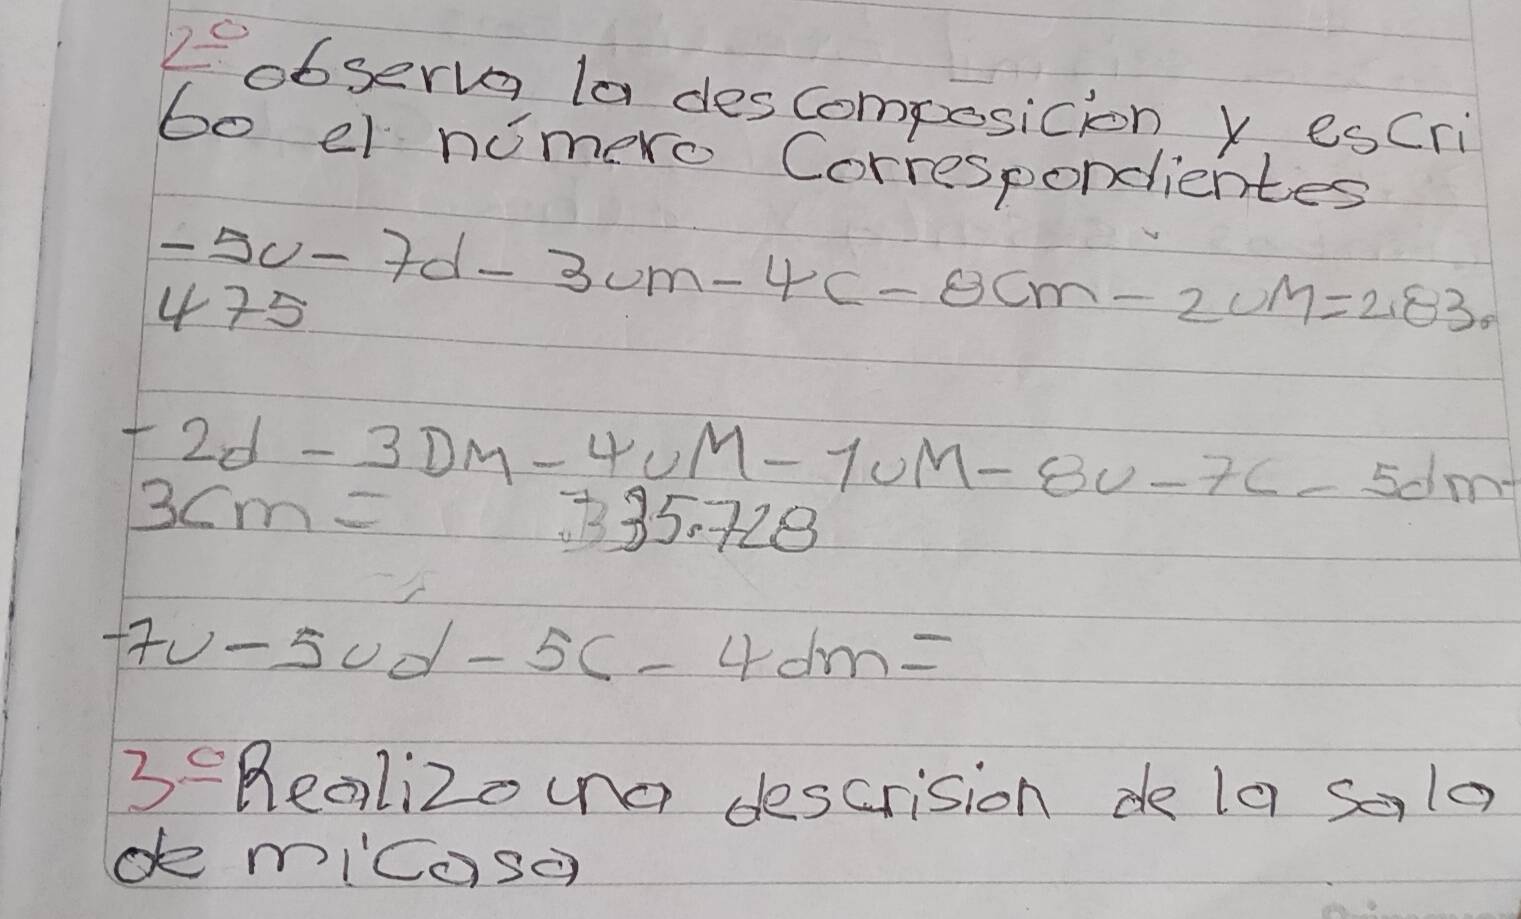 2º observa la descomposición y escri
bo el número Correspondientes
- 5u - 7d - 3um - 4c - 8cm - 2uM = 2.83.
475
- 2d - 3DM - 4uM - 1uM - 8u - 7c - 5dm -
3cm = 335.728
- 7u - 5ud - 5c - 4dm =
3º Realizo una descrision de la sala
de mi casa